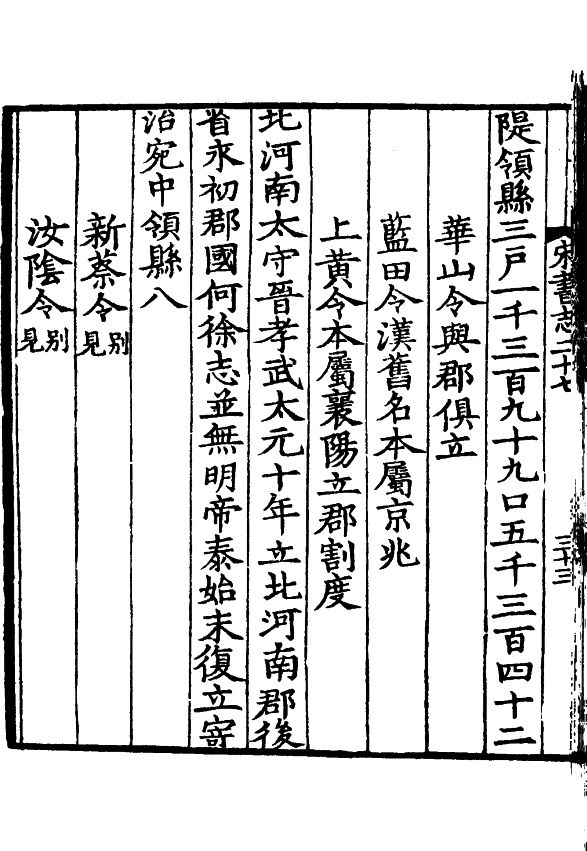 宋書志二十七
三十三
隄領縣三戸一千三百九十九口五千三百四十二
華山令與郡俱立
藍田令漢舊名本屬京兆
上黃令本屬襄陽立郡割度
北河南太守晉孝武太元十年立北河南郡後
省永初郡國何徐志並無明帝泰始末復立寄
治宛中領縣八
新蔡令別見
汝陰令別見